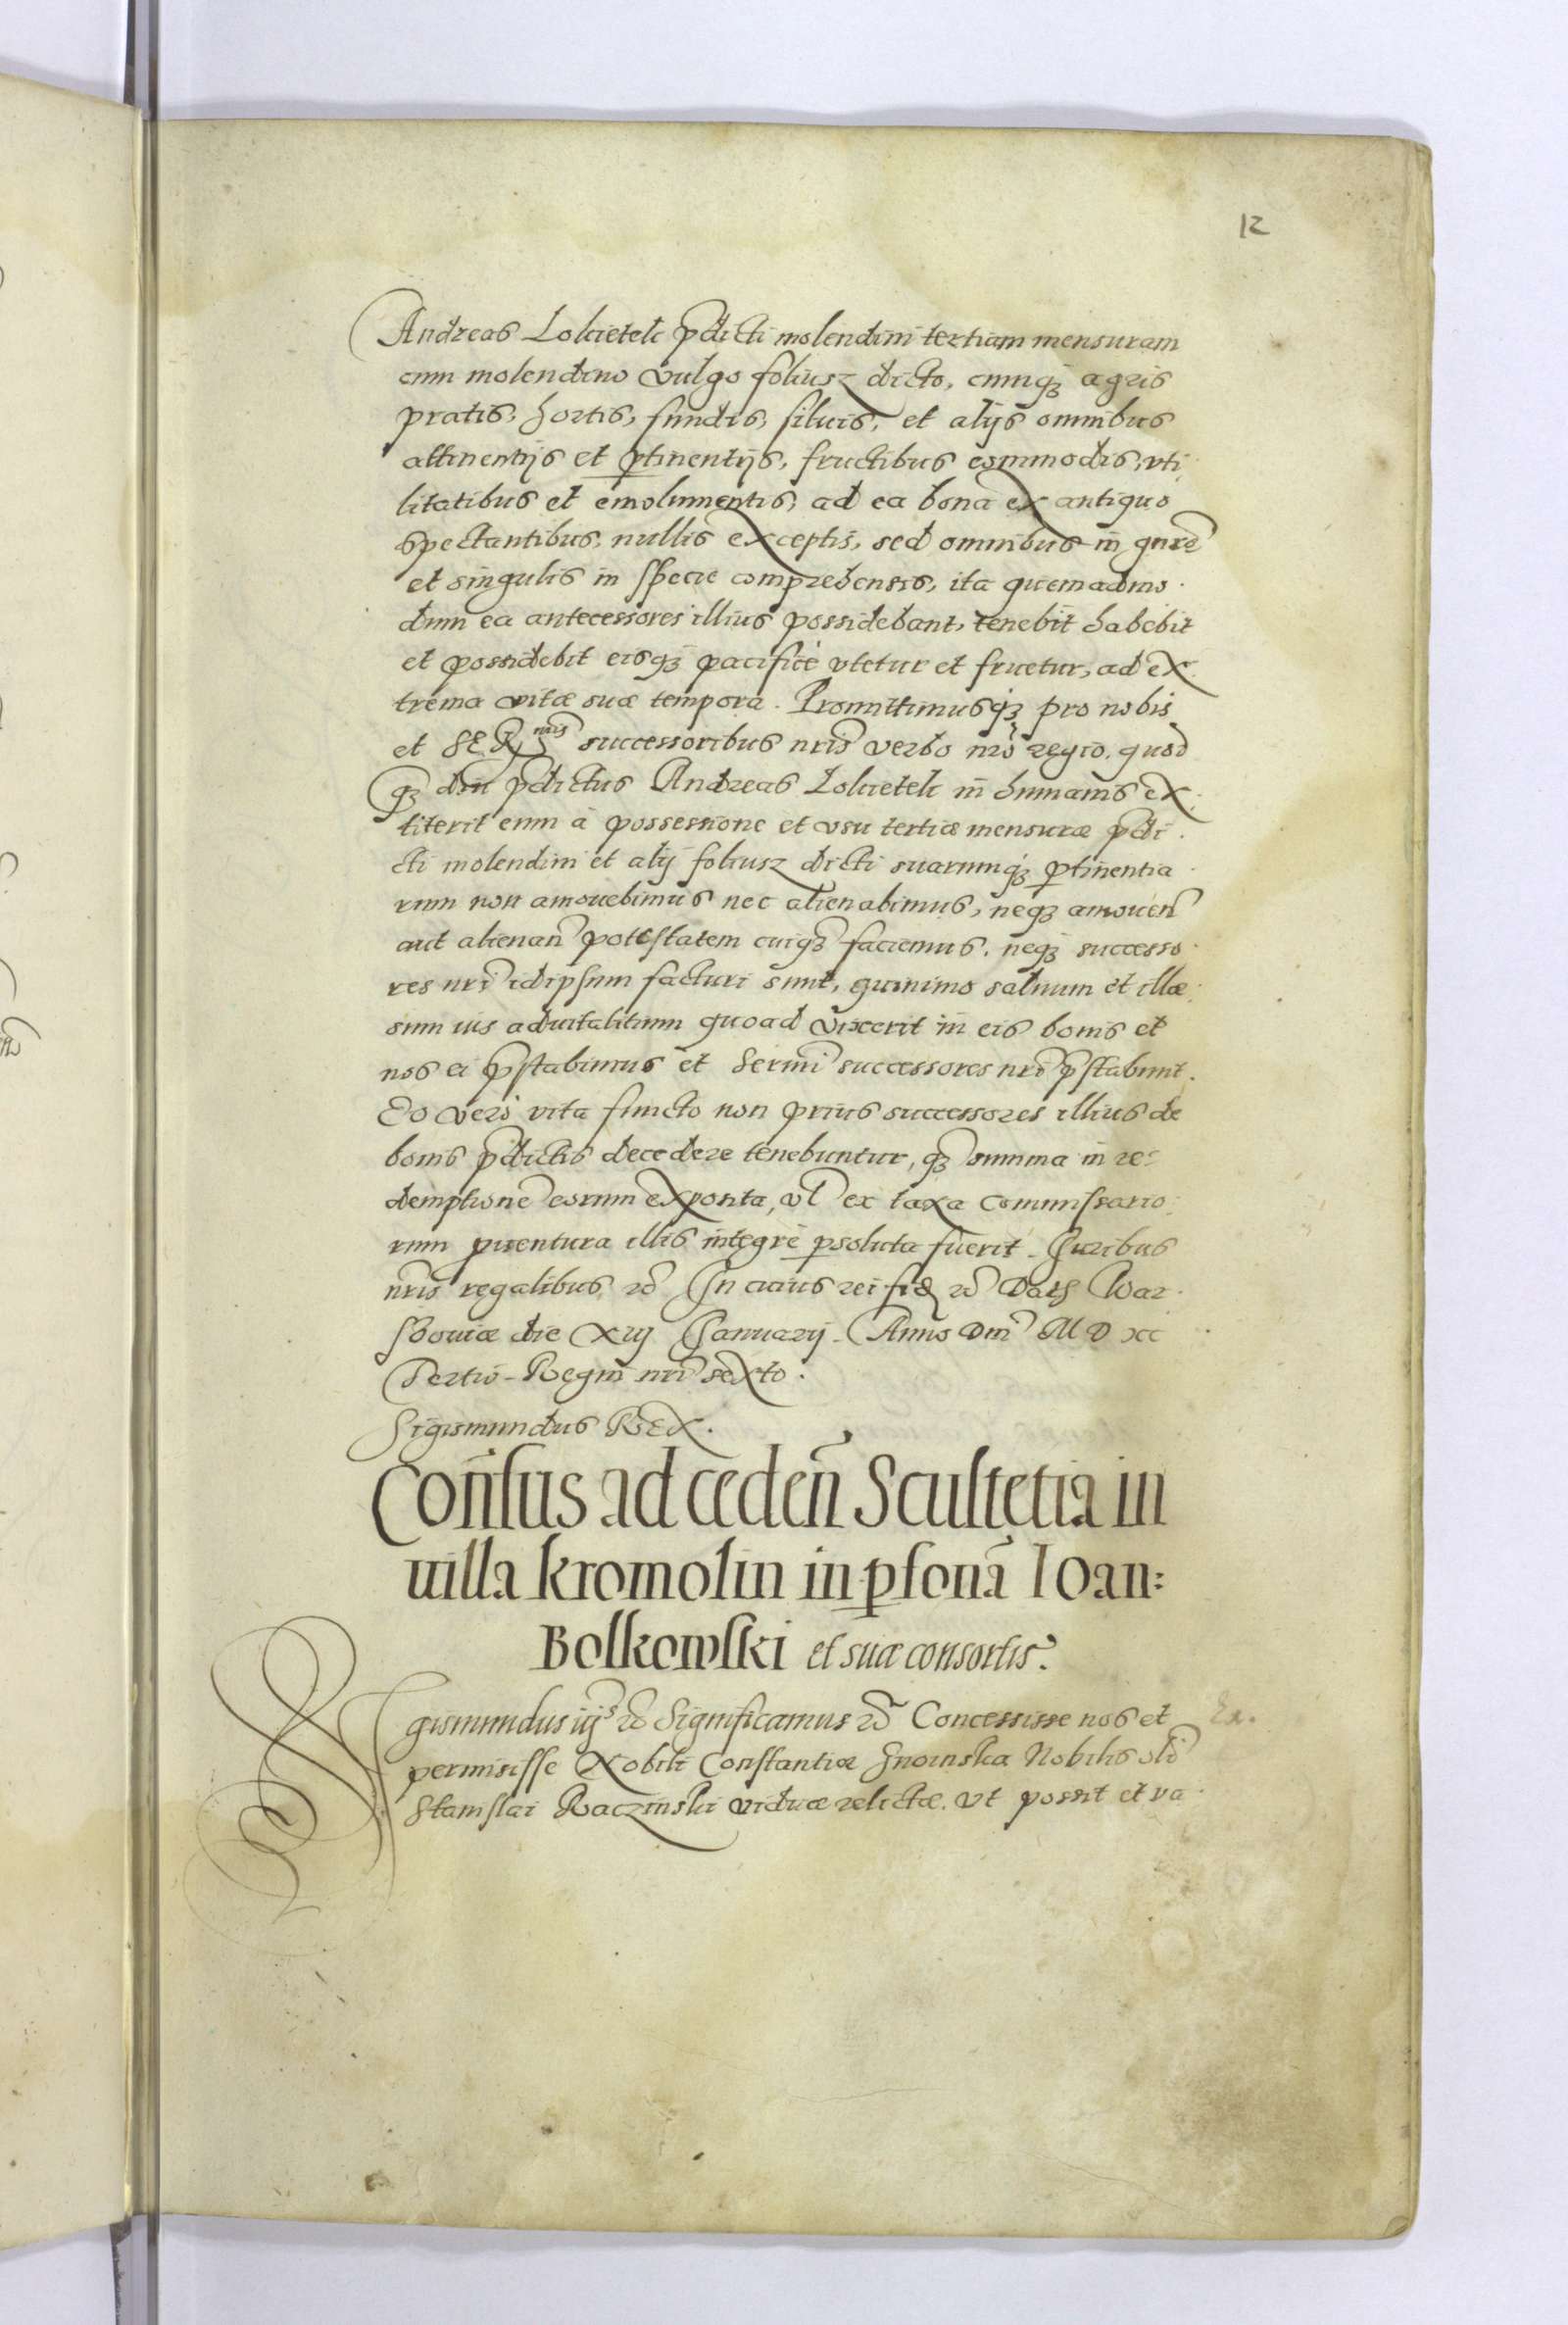 12
Andreas Lokietek pdicti molendini tertiam mensuram
cum molendino vulgo folusz dicto, cumq́ꝫ agris
pratis, hortis, fundis, siluis, et alijs omnibus
attinentijs et ꝑtinentijs, fructibus commodis, vti
litatibus et emolumentis, ad ea bona ex antiquo
spectantibus, nullis exceptis, sed omnibus in gnre
et singulis in specie comprehensis, ita quemadmo
dum ea antecessores illius possidebant, tenebit habebit
et possidebit eisqꝫ pacifice vtetur et fruetur, ad ex
trema vitæ suæ tempora. Promittimusqꝫ pro nobis
et SERmis successoribus nris verbo nro regio, quod
qꝫ diu pdictus Andreas Lokietek in humanis ex
titerit eum à possessione et vsu tertiæ mensuræ pdi
cti molendini et alij folusz dicti suarumqꝫ ꝑtinentia
rum non amouebimus nec alienabimus, neqꝫ amouen
aut alienan potestatem cuiqꝫ faciemus, neqꝫ successo
res nri idipsum facturi sunt, quinimo saluum et illæ
sum ius aduitalitium quoad vixerit in eis bonis et
nos ei pstabimus et Sermi successores nri pstabunt.
Eo vero vita functo non prius successores illius de
bonis pdictis decedere tenebuntur, qꝫ summa in re
demptione eorum exposita, vl ex taxa Commissario
rum puentura illis integrè ꝑsoluta fuerit. Juribus
nris regalibus rc̃ In cuius rei fidꝫ rc̃ Datꝫ War
schouiæ die xiij Januarij. Anno Dni M D xc
Tertio. Regni nri sexto.
Sigismundus REX.
Consus ad ceden Scultetia in
uilla kromolin in ꝑsonã Ioan:
Bolkowski et suæ consortis.
Sigismundus iijs rc̃ Significamus rc̃ Concessisse nos et
Ex.
permisisse Nobili Constantiæ Gnoinska Nobilis oli
Stanislai Raczinski viduæ relictæ. vt possit et va